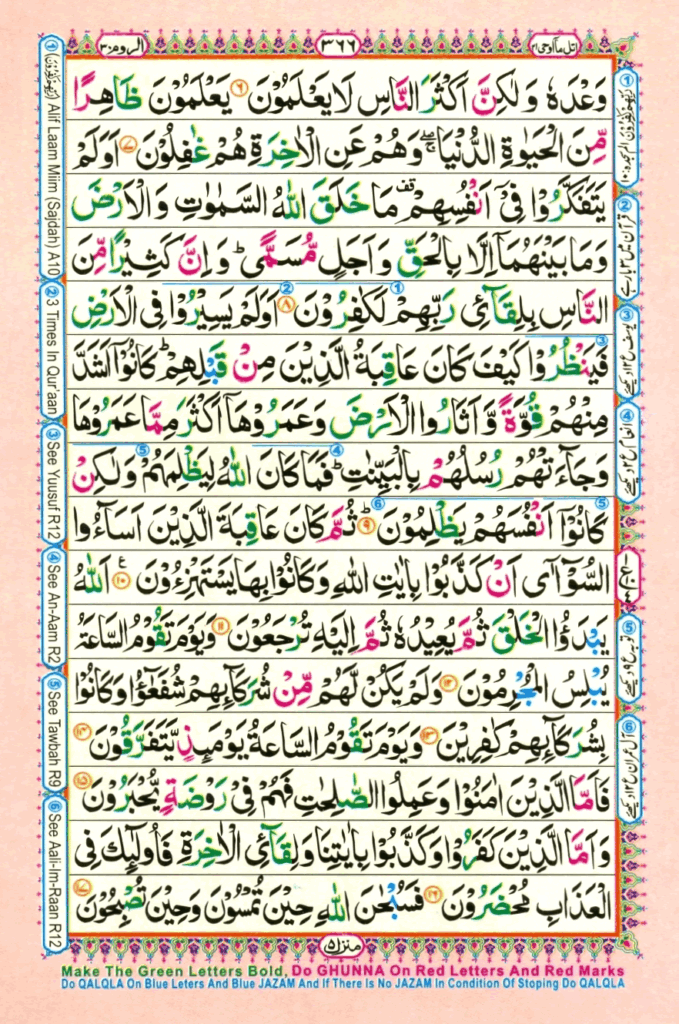 اتل ما اوحی ۲۱
۳۶۶
الروم ۳۰
وَعْدَهٗ وَ لٰكِنَّ اَكْثَرَ النَّاسِ لَا يَعْلَمُوْنَ ۶ يَعْلَمُوْنَ ظَاهِرًا
مِّنَ الْحَيٰوةِ الدُّنْيَا ۖۚ وَهُمْ عَنِ الْاٰخِرَةِ هُمْ غٰفِلُوْنَ ۷ اَوَلَمْ
يَتَفَكَّرُوْا فِیْۤ اَنْفُسِهِمْ ۫ مَا خَلَقَ اللّٰهُ السَّمٰوٰتِ وَ الْاَرْضَ
وَمَا بَيْنَهُمَاۤ اِلَّا بِالْحَقِّ وَ اَجَلٍ مُّسَمًّی ؕ وَ اِنَّ كَثِيْرًا مِّنَ
النَّاسِ بِلِقَآئِ رَبِّهِمْ لَكٰفِرُوْنَ ۸ اَوَلَمْ يَسِيْرُوْا فِی الْاَرْضِ
فَيَنْظُرُوْا كَيْفَ كَانَ عَاقِبَةُ الَّذِيْنَ مِنْ قَبْلِهِمْ ؕ كَانُوْۤا اَشَدَّ
مِنْهُمْ قُوَّةً وَّ اَثَارُوا الْاَرْضَ وَعَمَرُوْهَاۤ اَكْثَرَ مِمَّا عَمَرُوْهَا
وَجَآءَتْهُمْ رُسُلُهُمْ بِالْبَيِّنٰتِ ؕ فَمَا كَانَ اللّٰهُ لِيَظْلِمَهُمْ وَلٰكِنْ
كَانُوْۤا اَنْفُسَهُمْ يَظْلِمُوْنَ ۹ ثُمَّ كَانَ عَاقِبَةَ الَّذِيْنَ اَسَآءُوا
السُّوْٓاٰۤی اَنْ كَذَّبُوْا بِاٰيٰتِ اللّٰهِ وَكَانُوْا بِهَا يَسْتَهْزِءُوْنَ ۱۰ اَللّٰهُ
يَبْدَؤُا الْخَلْقَ ثُمَّ يُعِيْدُهٗ ثُمَّ اِلَيْهِ تُرْجَعُوْنَ ۱۱ وَيَوْمَ تَقُوْمُ السَّاعَةُ
يُبْلِسُ الْمُجْرِمُوْنَ ۱۲ وَلَمْ يَكُنْ لَّهُمْ مِّنْ شُرَكَآئِهِمْ شُفَعٰٓؤُا وَكَانُوْا
بِشُرَكَآئِهِمْ كٰفِرِيْنَ ۱۳ وَيَوْمَ تَقُوْمُ السَّاعَةُ يَوْمَئِذٍ يَّتَفَرَّقُوْنَ ۱۴
فَاَمَّا الَّذِيْنَ اٰمَنُوْا وَعَمِلُوا الصّٰلِحٰتِ فَهُمْ فِیْ رَوْضَةٍ يُّحْبَرُوْنَ ۱۵
وَ اَمَّا الَّذِيْنَ كَفَرُوْا وَكَذَّبُوْا بِاٰيٰتِنَا وَلِقَآئِ الْاٰخِرَةِ فَاُولٰٓئِكَ فِی
الْعَذَابِ مُحْضَرُوْنَ ۱۶ فَسُبْحٰنَ اللّٰهِ حِيْنَ تُمْسُوْنَ وَحِيْنَ تُصْبِحُوْنَ ۱۷
منزل ۵
① Alif Laam Miim (Sajdah) A10
② 3 Times In Qur'aan
③ See Yuusuf R12
④ See An-Aam R2
⑤ See Tawbah R9
⑥ See Aali-Im-Raan R12
② قرآن میں ۳ بار ہے
③ یوسف ع ۱۲ دیکھئے
④ انعام ع ۲ دیکھئے
⑤ توبہ ع ۹ دیکھئے
⑥ آل عمران ع ۱۲ دیکھئے
Make The Green Letters Bold, Do GHUNNA On Red Letters And Red Marks
Do QALQLA On Blue Leters And Blue JAZAM And If There Is No JAZAM In Condition Of Stoping Do QALQLA